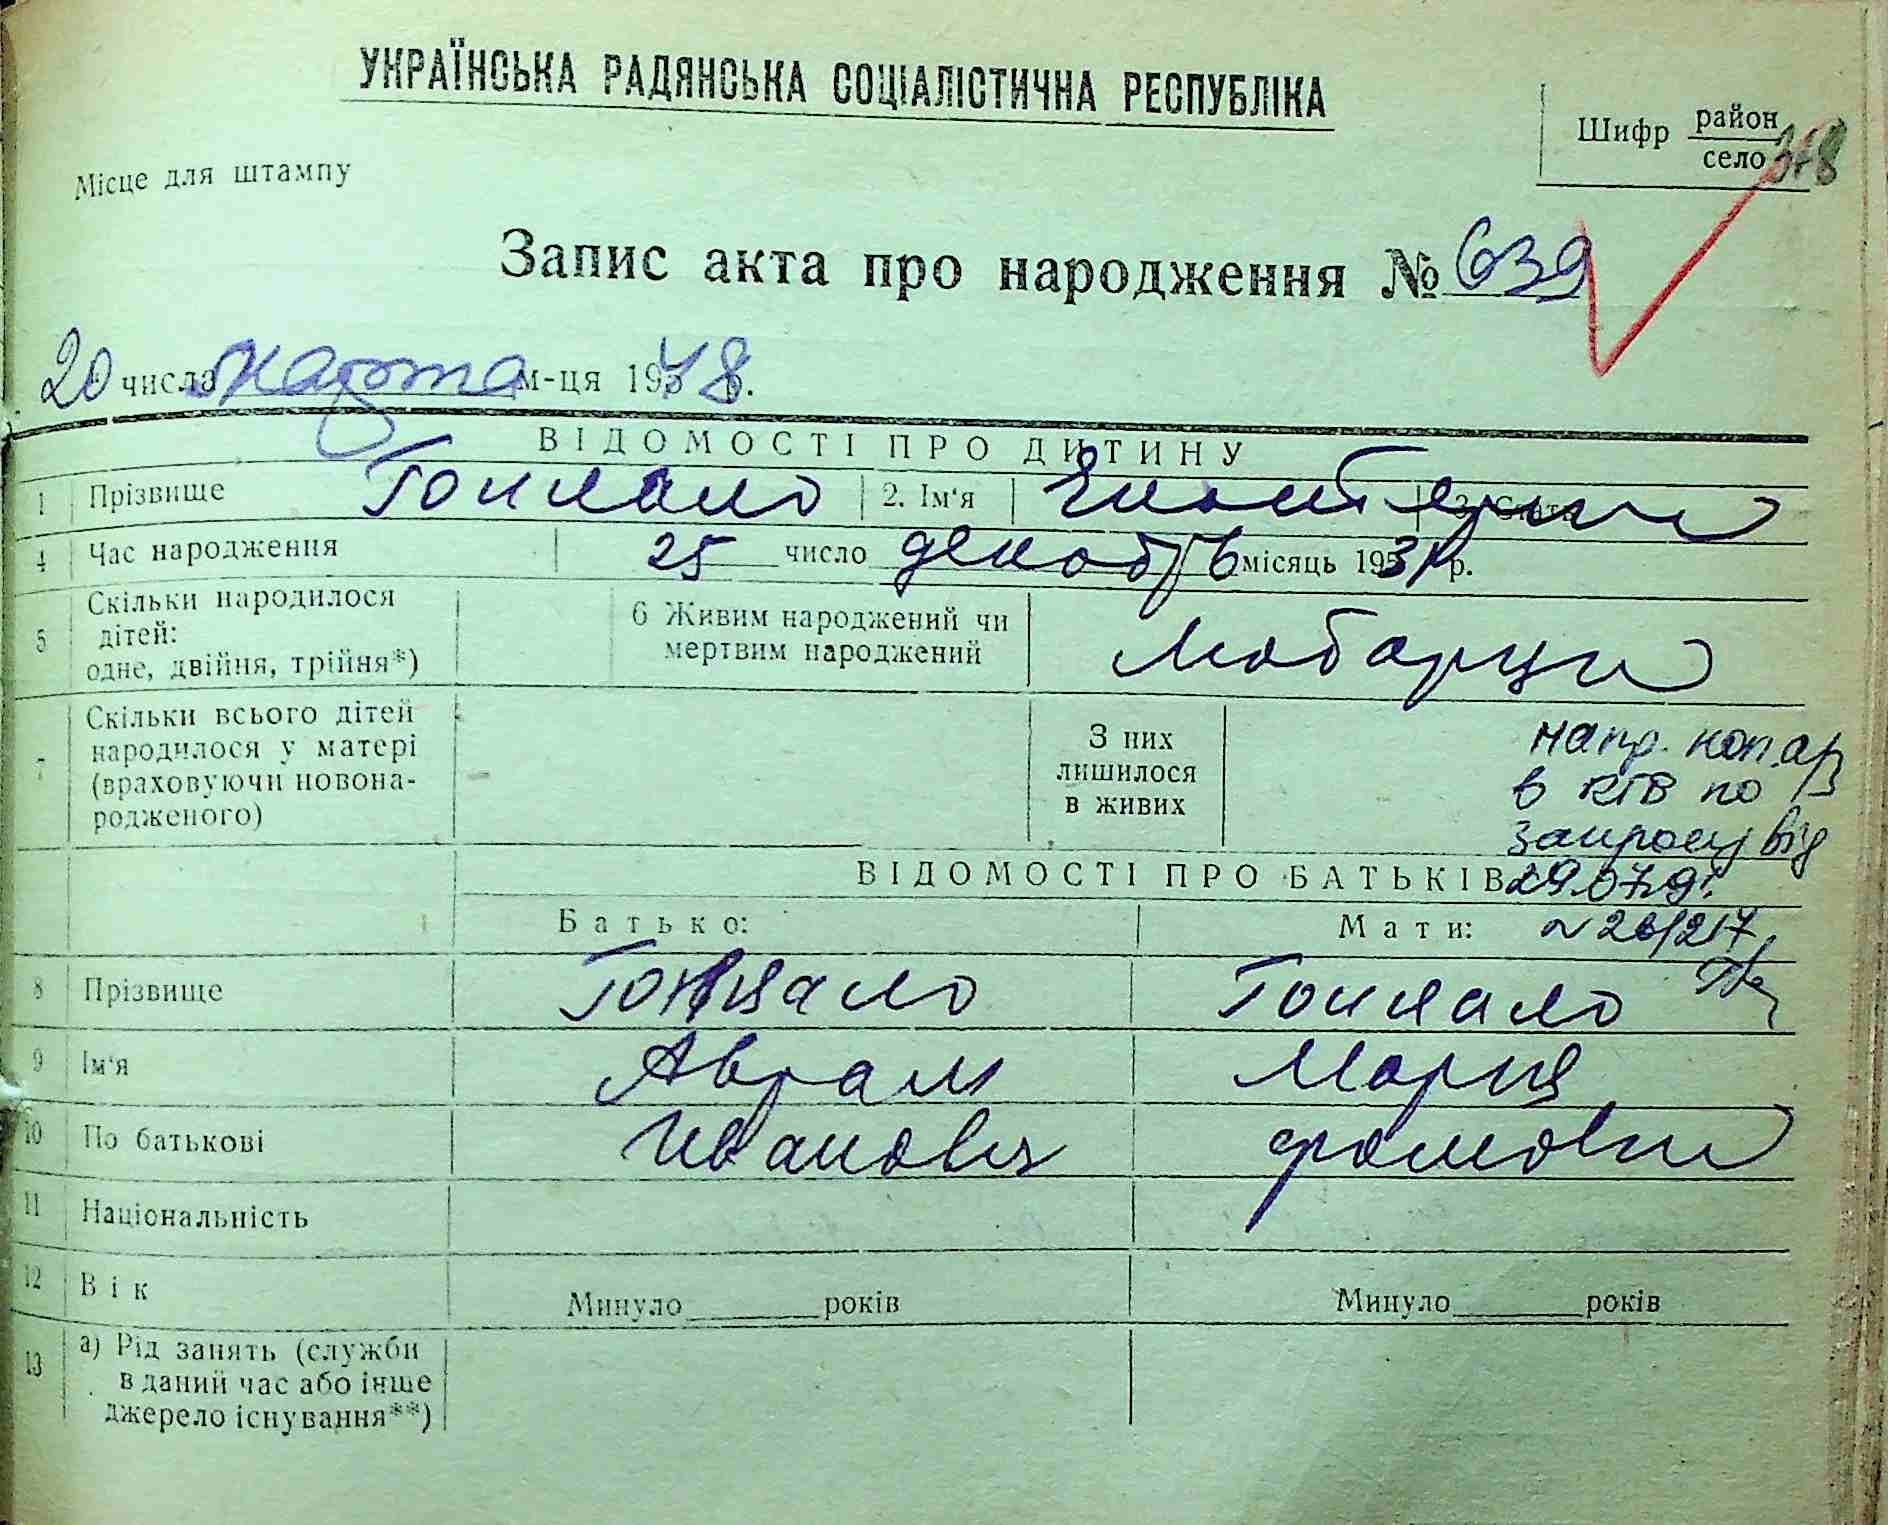 УКРАЇНСЬКА РАДЯНСЬКА СОЦІАЛІСТИЧНА РЕСПУБЛІКА
Шифр район
село 318
Місце для штампу
Запис акта про народження № 639
20 числа марта м-ця 1948.
ВІДОМОСТІ ПРО ДИТИНУ
1 Прізвище 2. Ім'я 3. Стать
4 Час народження 25 число декабрь місяць 1931 р.
5 Скільки народилося дітей: одне, двійня, трійня*) 6 Живим народжений чи мертвим народжений
7 Скільки всього дітей народилося у матері (враховуючи новонародженого) З них лишилося в живих
в КГБ по
запросу від
ВІДОМОСТІ ПРО БАТЬКІВ 29.07.91.
Батько: Мати: № 26/217
8 Прізвище
9 Ім'я Аврам Мария
10 По батькові Иванович Фомовна
11 Національність
12 Вік Минуло років Минуло років
13 а) Рід занять (служби
в даний час або інше
джерело існування**)